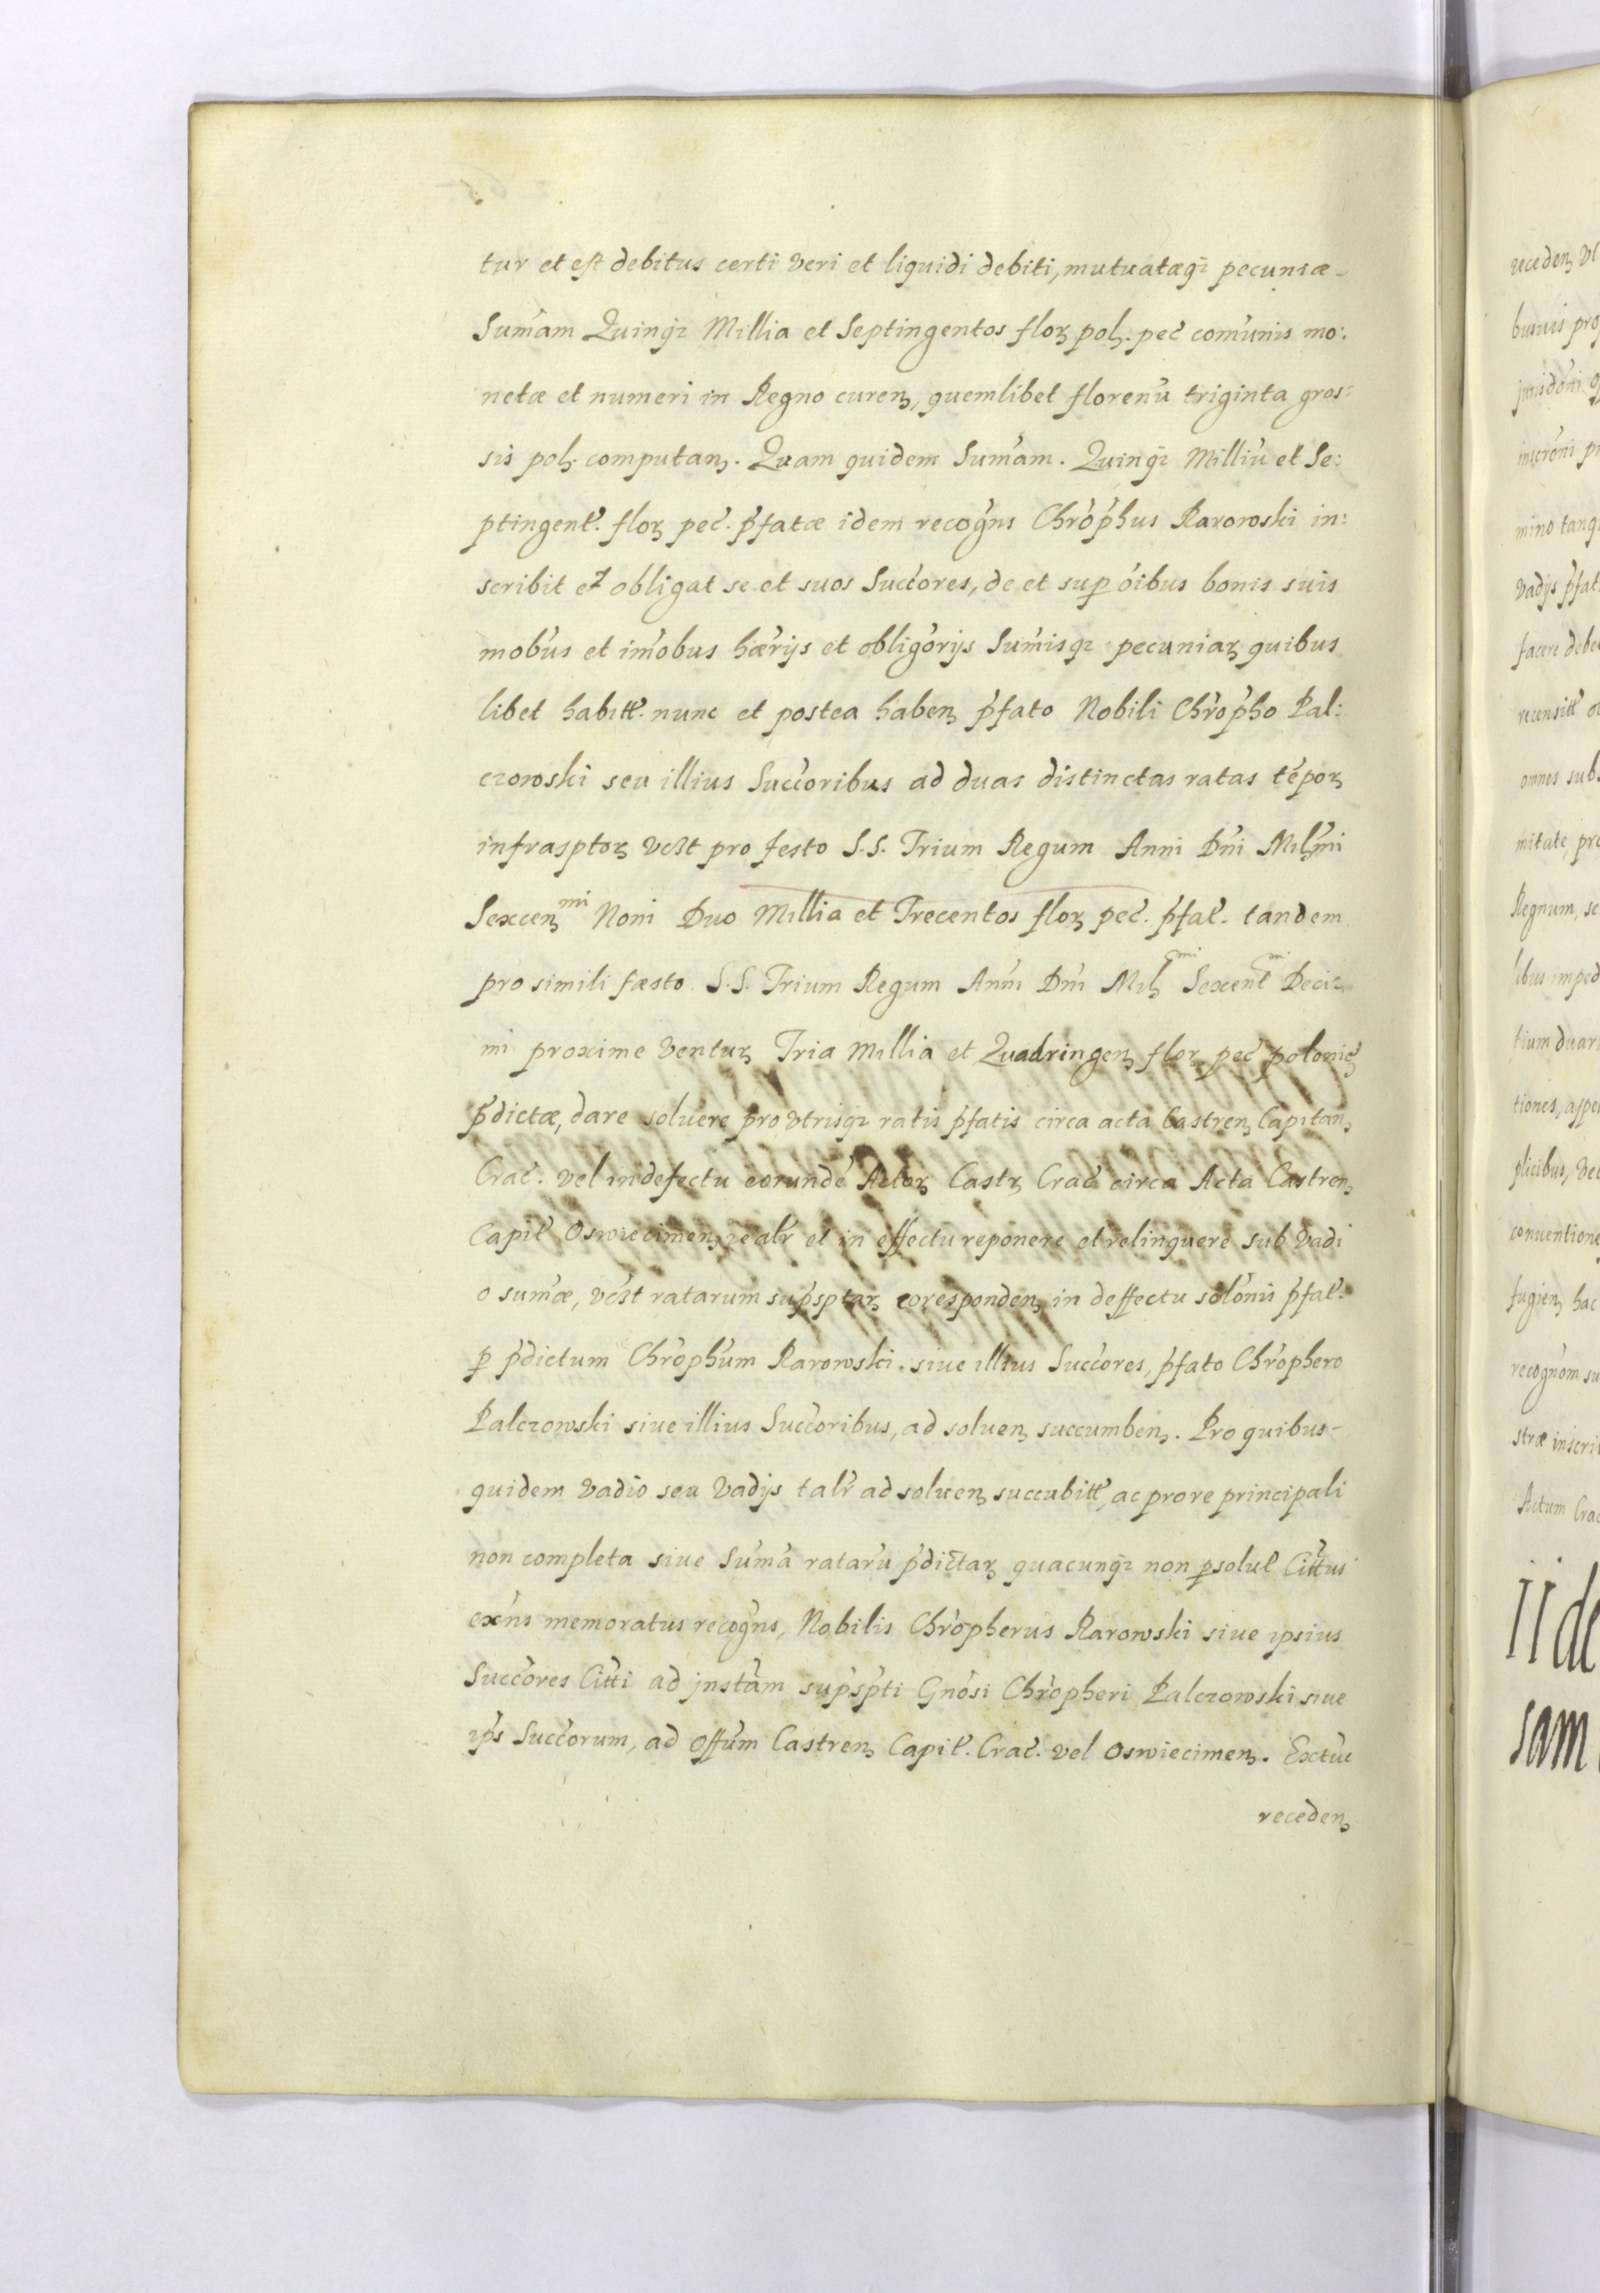 tur et est debitus certi veri et liquidi debiti, mutuatæqȝ pecuniæ
Sum̃am Quinqȝ Millia et Septingentos florȝ polȝ. pec̃ com̃unis mo:
netæ et numeri in Regno curenȝ, quemlibet florenũ triginta gros:
sis polȝ computanȝ. Quam quidem Sum̃am. Quinqȝ Milliũ et Se:
ptingent̃. florȝ pec̃. p̃fatæ idem recog̃ns Chr̃op̃hus Rarowski in:
scribit et obligat se et suos Succ̃ores, de et sup õibus bonis suis
mob̃us et im̃obus hær̃ijs et oblig̃orijs Sum̃isqȝ pecuniarȝ quibus
libet habitt̃. nunc et postea habenȝ p̃fato Nobili Chr̃op̃ho Pal:
czowski seu illius Succ̃oribus ad duas distinctas ratas tẽporȝ
infrasptorȝ vc̃lt pro festo S.S. Trium Regum Anni Dñi Milȝm̃i
Sexcenȝmi Noni Duo Millia et Trecentos florȝ pec̃. p̃fat̃. tandem
pro simili fæsto S.S. Trium Regum Anñi Dñi Milȝmi Sexcent̃mi Deci:
mi proxime venturȝ Tria Millia et Quadringenȝ florȝ pec̃ polonic̃
p̃dictæ, dare soluere pro vtrisqȝ ratis p̃fatis circa acta Castrenȝ Capitanȝ
Crac̃. vel in defectu eorundẽ Actorȝ Castrȝ Crac̃ circa Acta Castrenȝ
Capit̃ Oswiecimenȝ realr̃ et in effectu reponere et relinquere sub vadi
o sum̃æ, vc̃lt ratarum sup̃sptarȝ corespondenȝ in deffectu sol̃onis p̃fat̃.
p p̃dictum Chr̃oph̃um Rarowski. siue illius Succ̃ores, p̃fato Chr̃ophero
Palczowski siue illius Succ̃oribus, ad soluenȝ succumbenȝ. Pro quibus
quidem vadio seu vadijs talr̃ ad soluenȝ succubitt̃, ac pro re principali
non completa siue Sum̃a ratarũ p̃dictarȝ quacunqȝ non psolut̃ Citt̃us
exñs memoratus recog̃ns, Nobilis Chr̃opherus Rarowski siue ipsius
Succ̃ores Citt̃i ad jnstãm sup̃sp̃ti Gñosi Chr̃opheri Palczowski siue
ip̃s Succ̃orum, ad Off̃um Castrenȝ Capit̃. Crac̃. vel Oswiecimenȝ. Extũc
recedenȝ